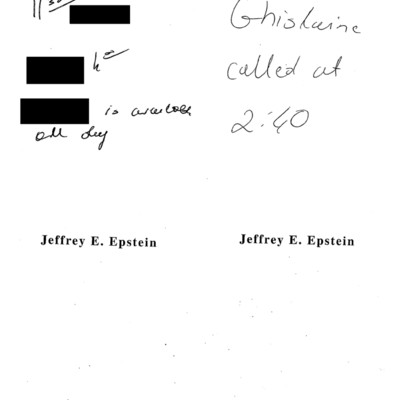 is available
all day
Jeffrey E. Epstein
Ghislaine
called at
2:40
Jeffrey E. Epstein